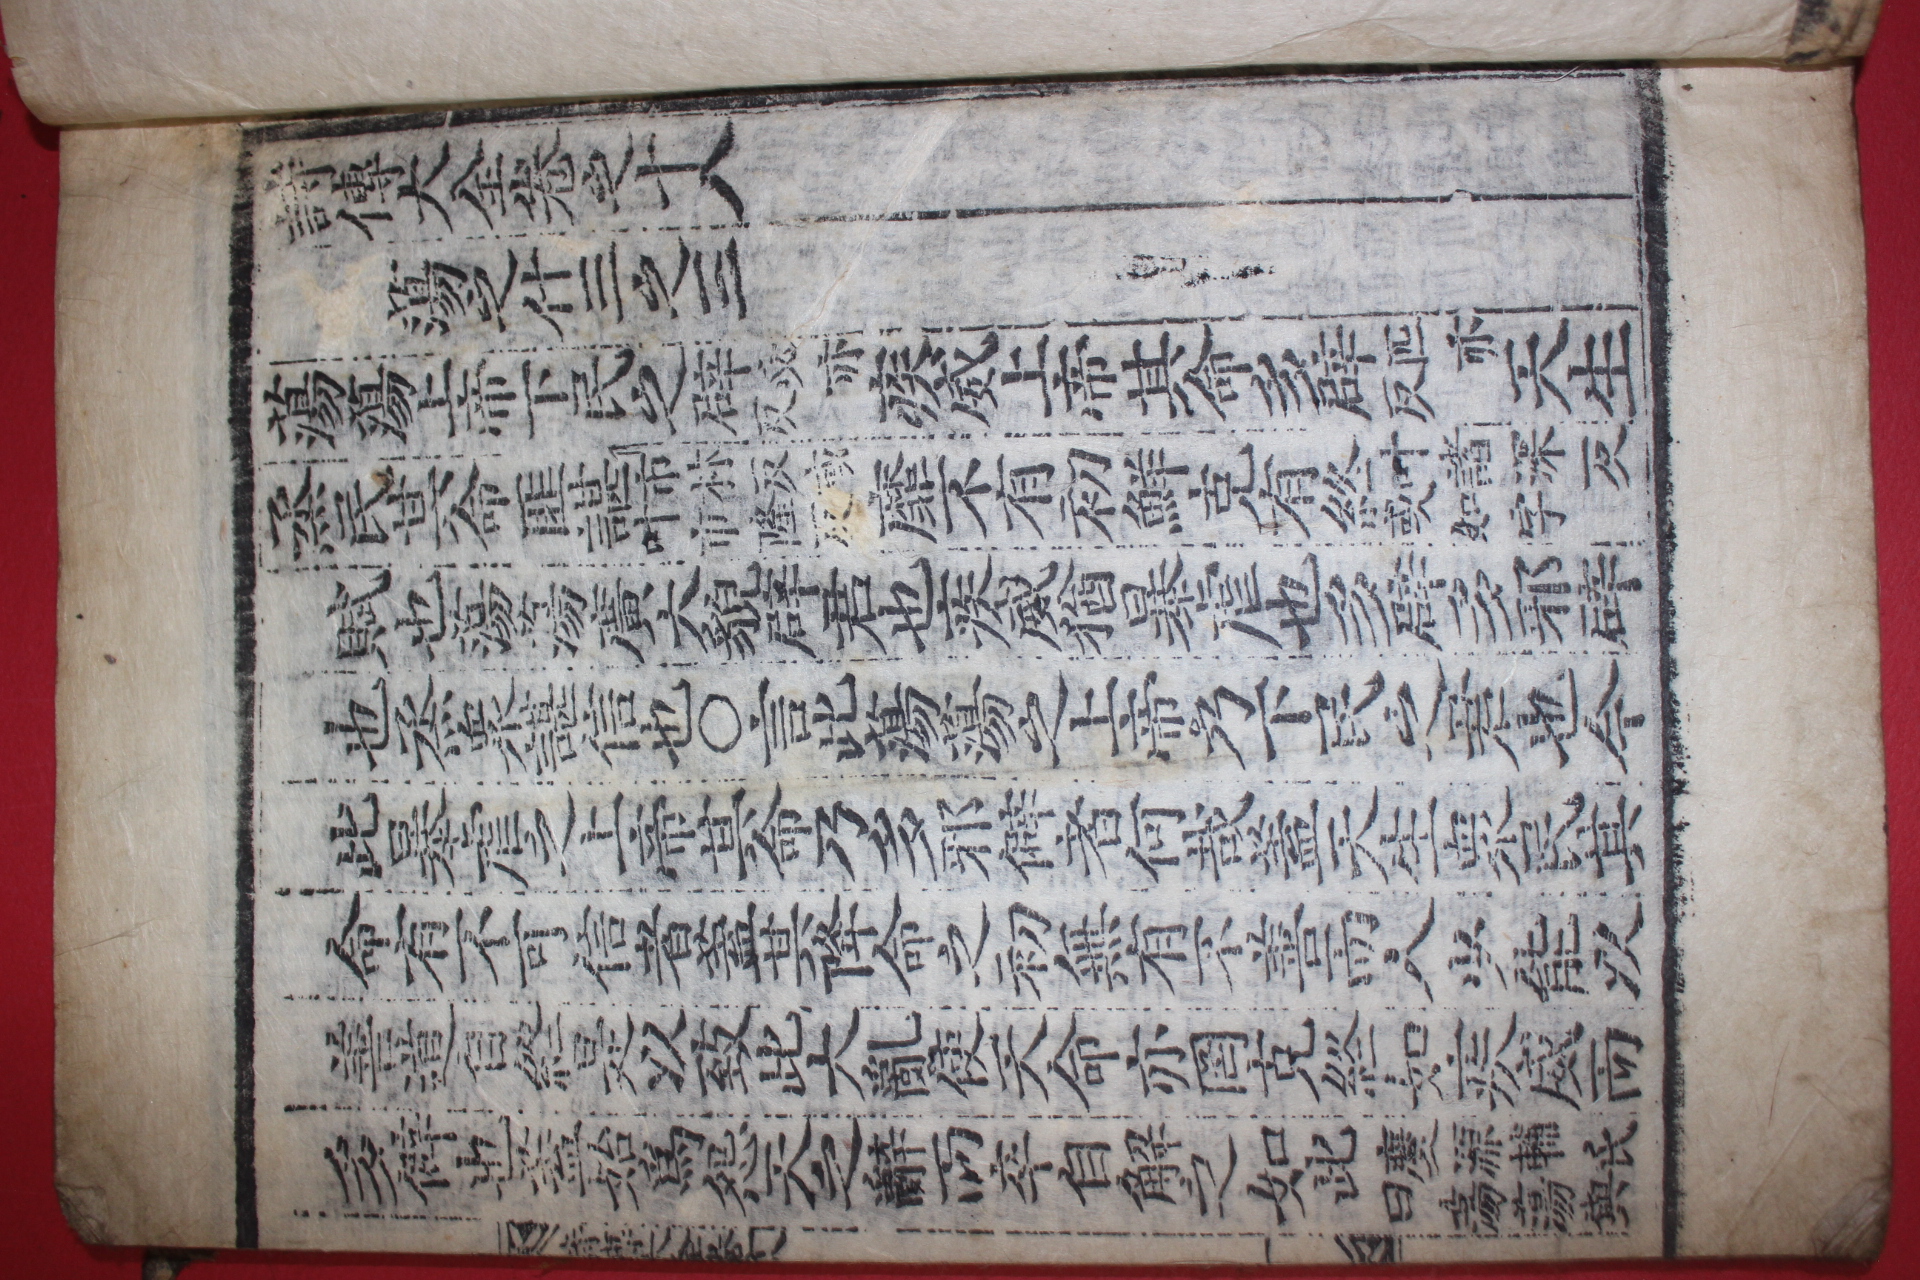 詩傳大全卷之十八
蕩之什三之三
蕩蕩上帝下民之辟亦反疾威上帝其命多辟匹亦反天生
烝民其命匪諶市林反或叶市隆反靡不有初鮮克有終叶諸深反或如字
賦也蕩蕩廣大貌辟君也疾威猶暴虐也多辟多邪辟
也烝衆諶信也○言此蕩蕩之上帝乃下民之君也今
此暴虐之上帝其命乃多邪僻者何哉蓋天生衆民其
命有不可信者蓋其降命之初無有不善而人少能以
善道自終是以致此大亂使天命亦罔克終如疾威而
多僻也蓋始爲怨天之辭而卒自解之如此慶源輔氏曰蕩蕩與